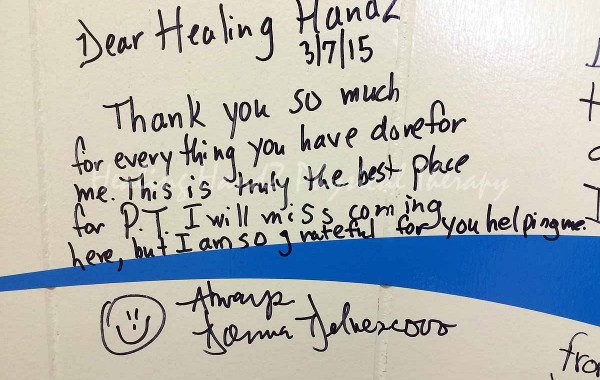 Dear Healing Handz
3/7/15
Thank you so much
for everything you have done for
me. This is truly the best place
for P.T. I will miss coming
here, but I am so grateful for you helping me.
Always
Donna
from
Healing Handz Physical Therapy